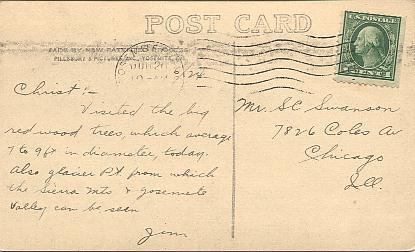 POST CARD
MADE BY NEW PATENTED PROCESS
PILLSBURY'S PICTURES, INC., YOSEMITE, CAL.
U.S. POSTAGE
Christ :-
Visited the big
red wood trees, which average
7 to 9ft in diameter, today.
Also glacier Pt. from which
the Sierra Mts & yosemite
Valley can be seen
Jim
Mr. SC Swanson
7826 Coles Av
Chicago
Ill.